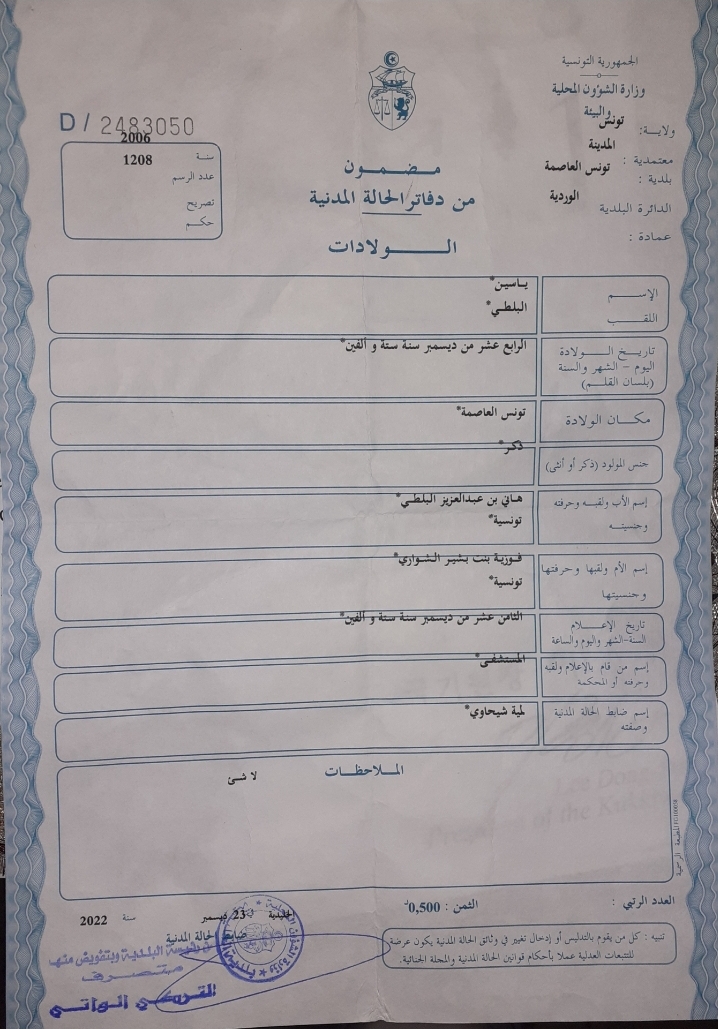 الجمهورية التونسية
وزارة الشؤون المحلية
والبيئة
ولاية: تونس
معتمدية : المدينة
بلدية : تونس العاصمة
الدائرة البلدية الوردية
عمادة :
D / 2483050
سنة 2006
عدد الرسم 1208
تصريح
حكم
مضمون
من دفاتر الحالة المدنية
الولادات
الإسم ياسين*
اللقب البلطي*
تاريخ الولادة الرابع عشر من ديسمبر سنة ستة و ألفين*
اليوم - الشهر والسنة
(بلسان القلم)
مكان الولادة تونس العاصمة*
جنس المولود (ذكر أو أنثى) ذكر*
إسم الأب ولقبه وحرفته هاني بن عبدالعزيز البلطي*
وجنسيته تونسية*
إسم الأم ولقبها وحرفتها فوزية بنت بشير الشواري*
وجنسيتها تونسية*
تاريخ الإعلام الثامن عشر من ديسمبر سنة ستة و ألفين*
السنة-الشهر واليوم والساعة
إسم من قام بالإعلام ولقبه المستشفى*
وحرفته أو المحكمة
إسم ضابط الحالة المدنية لمية شيحاوي*
وصفته
الملاحظات
لا شئ
المطبعة الرسمية
العدد الرتبي :
الثمن : 0,500د
23 ديسمبر سنة 2022
ضابط الحالة المدنية
تنبيه : كل من يقوم بالتدليس أو إدخال تغيير في وثائق الحالة المدنية يكون عرضة
للتتبعات العدلية عملا بأحكام قوانين الحالة المدنية والمجلة الجنائية.
رئيسة البلدية وبتفويض منها
متصرف